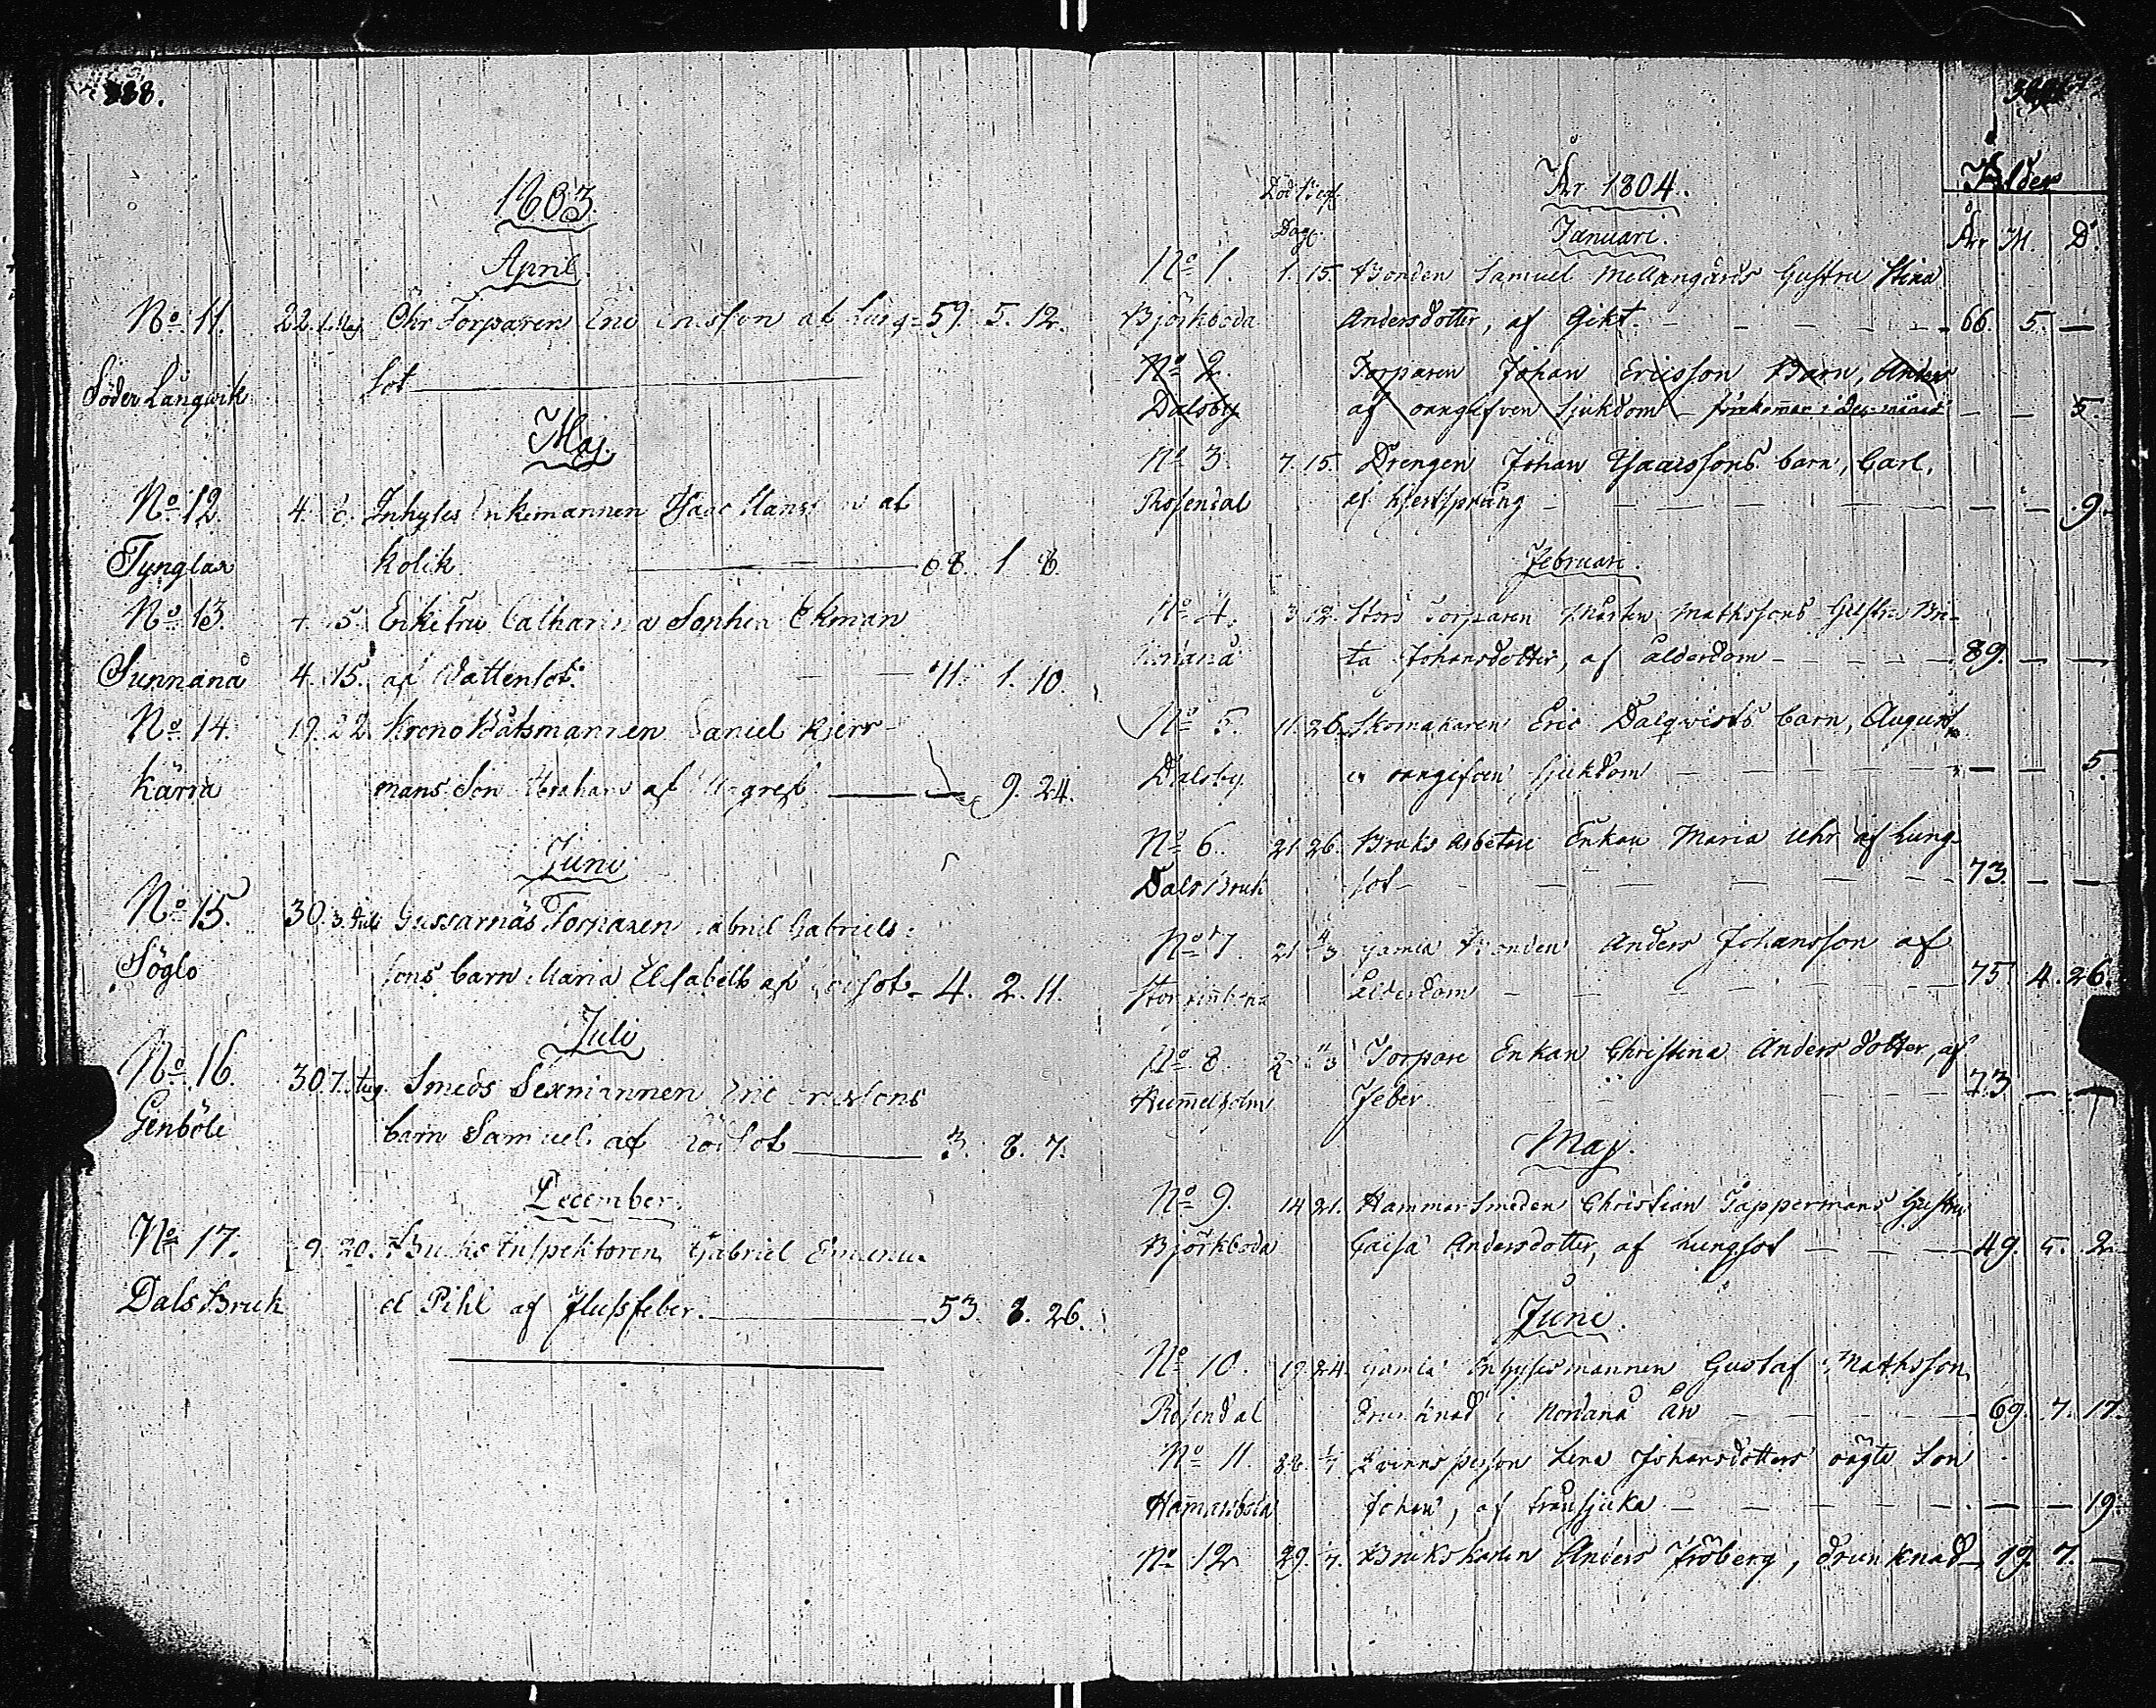 1803.
April.
No. 11. 22. 1. Maj. Ohr Torparen Eric af Lung= 59. 5. 12.
Söder Långwik sot
Maj.
No. 12. 4. 8. Inhyses Enkemannen Isaac Hansson af
Tynglax Kolik 68. 1. 8.
No. 13. + 15. Enkefru Catharina Sophia Ekman
Sunnanå 4. 15. af Wattensot. 1. 10.
No. 14. 19. 22. Krono Båtsmannen Daniel
Kärra mans Son Abraham af 9. 24.
Juni
No. 15. 30. 3. Juli Gussarnäs Torparen Gabriel Gabriels=
Söglo sons barn Maria Elisabeth af Rödsot 4. 2. 11.
Juli
No. 16. 30. 7. Aug. Smeds Sexmannen Eric Ericssons
Genböle barn Samuel af Rödsot 3. 8. 7.
December.
No. 17. 9. 20. Bruks Inspektoren Gabriel Emanu-
Dals Bruk el Pihl af Flussfeber. 53. 8. 26.
År 1804.
Död Begr. Ålder
Dag. Januari. År M. D.
No. 1. 1. 15. Bonden Samuel Mellangårds Hustru Stina
Björkboda Andersdotter, af Gikt. 66. 5. —
No. 2 Torparen Johan Ericsson Barn, Anders
Dalsby af oangifven Sjukdom — — 5.
No. 3. 7. 15. Drengen Johan Isaacssons barn, Carl,
Rosendal af hjertsprång — — 9.
Februari.
No. 4. 3. 12. Torparen Mårten Mathssons Hustru Bri-
ta Johansdotter, af ålderdom 89. — —
No. 5. 11. 26. Skomakaren Eric Dalqvists barn, August,
Dalsby. af oangifven Sjukdom — — 5.
No. 6. 21. 26. Bruks Arbetare Enkan Maria Uhr af Lung-
Dals Bruk sot 73. — —
No. 7. 21. 4/3 Gamla Bonden Anders Johansson af
Ålderdom 75. 4. 26.
No. 8. Torpare Enkan Christina Andersdotter, af
Hummelholm Feber 73 — —
Maj.
No. 9. 14. 21. Hammarsmeden Christian Tappermans Hustru
Björkboda Caisa Andersdotter, af Lungsot 49. 5. 2.
Juni.
No. 10. 19. 24. Gamla Inhysesmannen Gustaf Mathsson,
Rosendal drunknad i Nordanå Ån 69. 7. 17.
No. 11. 1/7 Qvinnspersson Lena Johansdotters oägta Son
Johan, af trånsjuka — — 19.
No. 12. 29. 7. Brukskarln Anders Fröberg, drunknad 19. 7. —